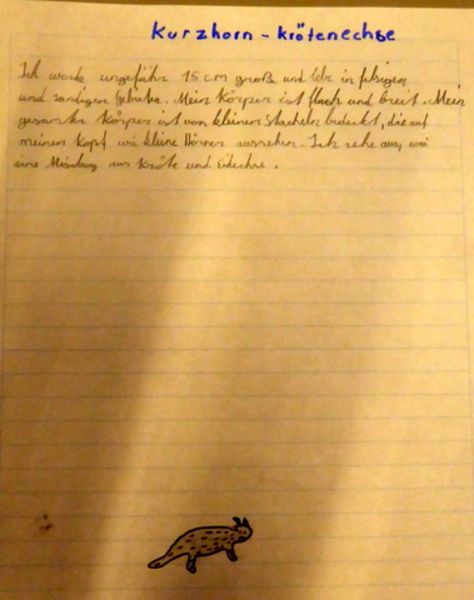 Kurzhorn - krötenechse
Ich werde ungefähr 15 cm groß und lebe in felsigen
und sandigen Gebieten. Mein Körper ist flach und breit. Mein
gesamter Körper ist von kleinen Stacheln bedeckt, die auf
meinen Kopf wie kleine Hörner aussehen. Ich sehe aus, wie
eine Mischung aus Kröte und Eidechse.